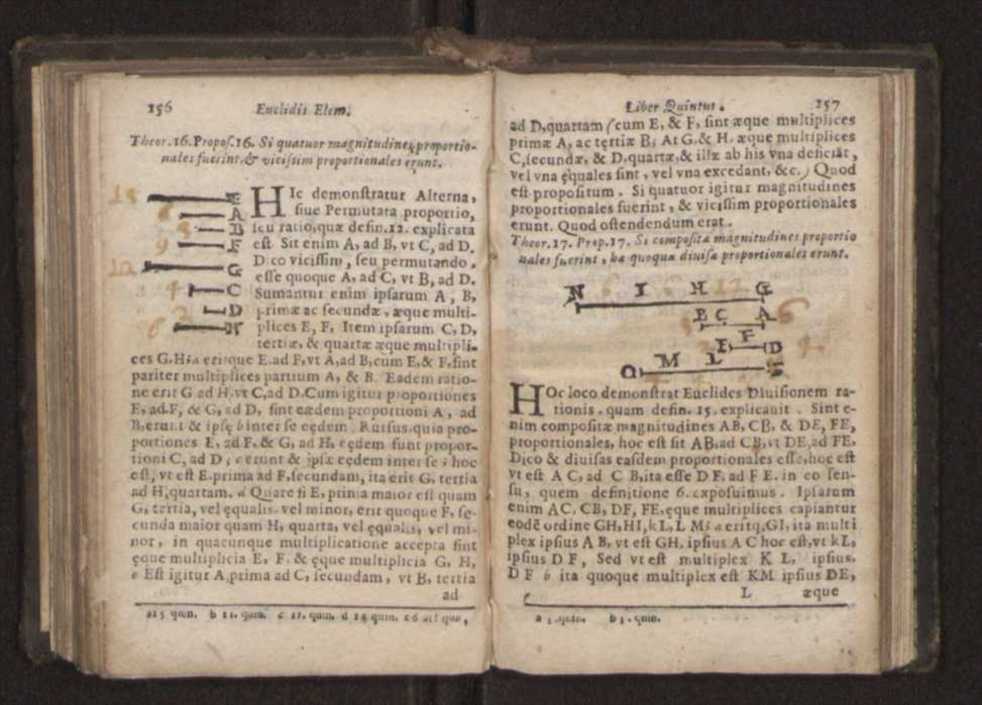 156 Euclidis Elem.
Theor.16.Propos.16. Si quatuor magnitudines proportio-
nales fuerint, & vicissim proportionales erunt.
E
A
B
F
G
C
D
H
HIc demonstratur Alterna,
siue Permutata proportio,
seu ratio, quæ defin.12. explicata
est. Sit enim A, ad B, vt C, ad D.
Dico vicissim, seu permutando,
esse quoque A, ad C, vt B, ad D.
Sumantur enim ipsarum A, B,
primæ ac secundæ, æque multi-
plices E, F. Item ipsarum C, D,
tertiæ, & quartæ æque multipli-
ces G, H; a eritque E. ad F, vt A, ad B, cum E, & F, sint
pariter multiplices partium A, & B. Eadem ratio-
ne erit G ad H, vt C, ad D. Cum igitur proportiones
E, ad F, & G, ad D, sint eædem proportioni A, ad
B, erunt & ipsę b inter se eędem. Rursus, quia pro-
portiones E, ad F, & G, ad H, eędem sunt propor-
tioni C, ad D; c erunt & ipsæ eędem inter se; hoc
est, vt est E. prima ad F, secundam, ita erit G, tertia
ad H, quartam. d Quare si E, prima maior est quam
G, tertia, vel ęqualis, vel minor, erit quoque F, se-
cunda maior quam H, quarta, vel ęqualis, vel mi-
nor, in quacunque multiplicatione accepta sint
ęque multiplicia E, F, & ęque multiplicia G, H,
e Est igitur A, prima ad C, secundam, vt B, tertia
ad
a 15 quin. b 11. quin. c 11. quin. d 14 quin. e 6
Liber Quintus. 157
ad D, quartam (cum E, & F, sint æque multiplices
primæ A, ac tertiæ B; At G, & H, æque multiplices
C, secundæ, & D, quartæ, & illæ ab his vna deficiāt,
vel vna ęquales sint, vel vna excedant, &c.) Quod
est propositum. Si quatuor igitur magnitudines
proportionales fuerint, & vicissim proportionales
erunt. Quod ostendendum erat.
Theor.17. Prop.17. Si compositæ magnitudines proportio
nales fuerint, hæ quoque diuisæ proportionales erunt.
N I H G
B C A
E F D
O M L
HOc loco demonstrat Euclides Diuisionem ra-
tionis, quam defin. 15. explicauit. Sint e-
nim compositæ magnitudines AB, CB, & DE, FE,
proportionales, hoc est sit AB, ad CB, vt DE, ad FE.
Dico & diuisas easdem proportionales esse, hoc est
vt est AC, ad CB, ita esse DF. ad FE. in eo sen-
su, quem definitione 6. exposuimus. Ipsarum
enim AC, CB, DF, FE, ęque multiplices capiantur
eodē ordine GH, HI, kL, LM; a eritq; GI, ita multi
plex ipsius AB, vt est GH, ipsius AC hoc est, vt kL,
ipsius DF, Sed vt est multiplex KL, ipsius.
DF b ita quoque multiplex est KM ipsius DE,
L æque
a 1. quin. b 1. quin.